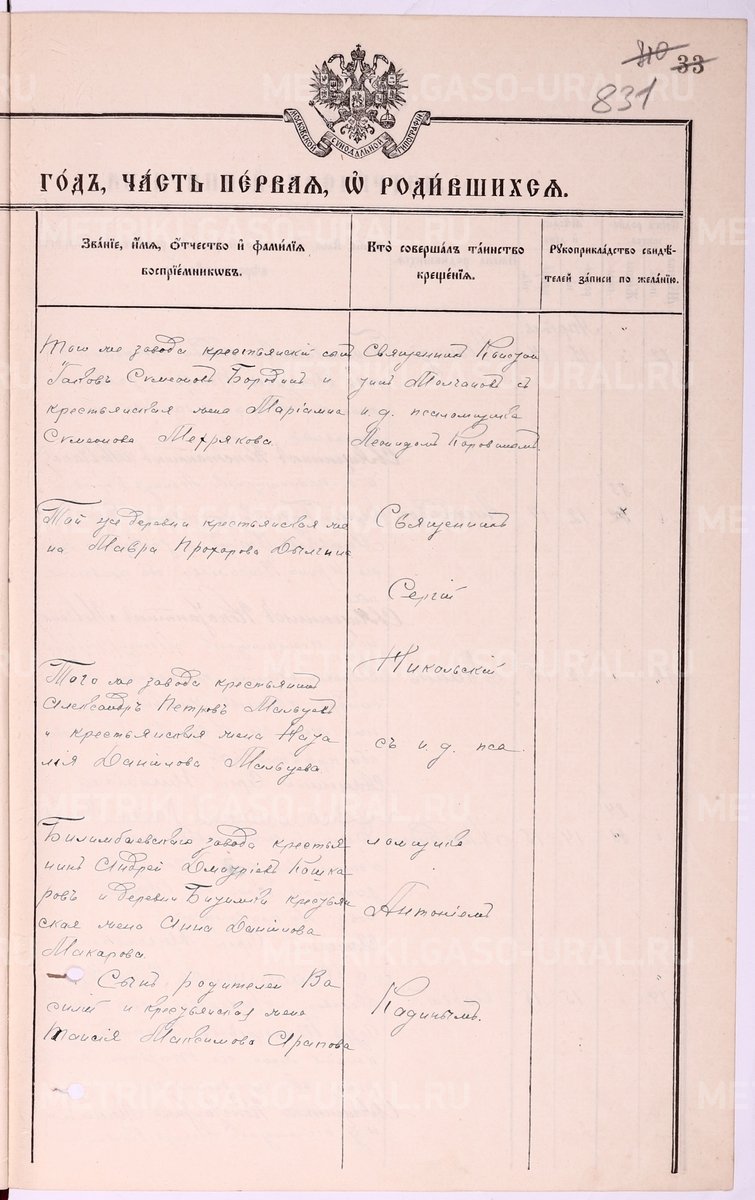 33
831
МОСКОВСКОЙ СѴНОДАЛЬНОЙ ТИПОГРАФІИ
METRIKI.GASO-URAL.RU
ГО́ДЪ, ЧА́СТЬ ПЕ́РВАЯ, Ѡ҆ РОДИ́ВШИХСЯ.
Зва́ніе, и҆́мя, ѻ҆́тчество и҆ фамилія
воспріе́мникѡвъ.
Кто̀ соверша́лъ та́инство
креще́нія.
Рꙋкоприкла́дство свидѣ́-
телей за́писи по жела́нію.
же завода крестьянскій сынъ
Іаковъ Сѵмеоновъ Бородинъ и
крестьянская жена Маріамна
Сѵмеонова Мехрякова.
Священникъ
Молчановъ съ
и. д. псаломщика
Леонидомъ Коровинымъ.
Той же деревни крестьянская же
на Мавра Прохорова
Священникъ
Сергій
Никольскій
съ и. д. пса
ломщика
Антоніемъ
Кадинымъ.
Того же завода крестьянинъ
Александръ Петровъ Мальцевъ
и крестьянская жена Ната
лія Даніилова Мальцева.
Билимбаевскаго завода крестья
нинъ Андрей Димитріевъ Кошка
ровъ и деревни крестьян
ская жена Анна Даніилова
Макарова.
Сынъ родителей Ва
силій и крестьянская жена
Таисія Максимова Арапова